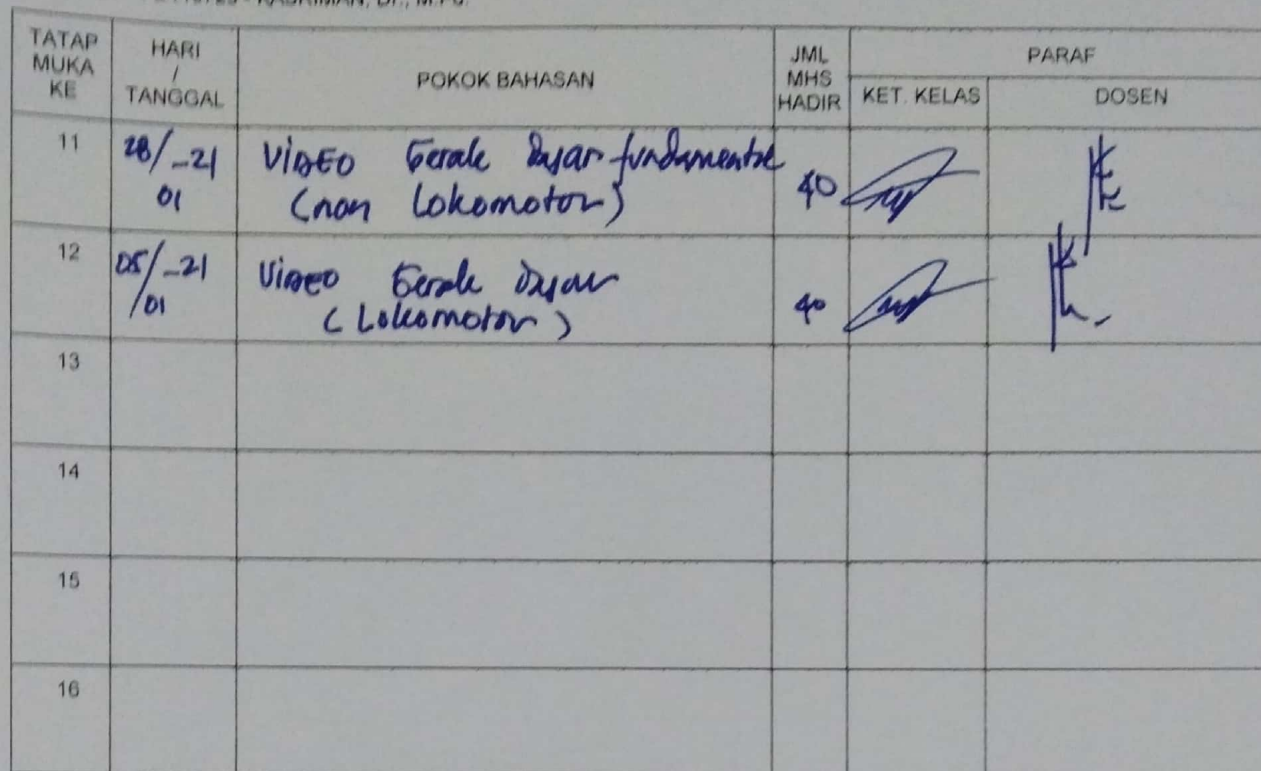 TATAP
MUKA
KE
HARI
/
TANGGAL
POKOK BAHASAN
JML
MHS
HADIR
PARAF
KET. KELAS
DOSEN
11
28/-21
01
VIDEO Gerak Dasar fundamental
(non Lokomotor)
40
12
05/-21
/01
Video Gerak Dasar
(Lokomotor)
40
13
14
15
16